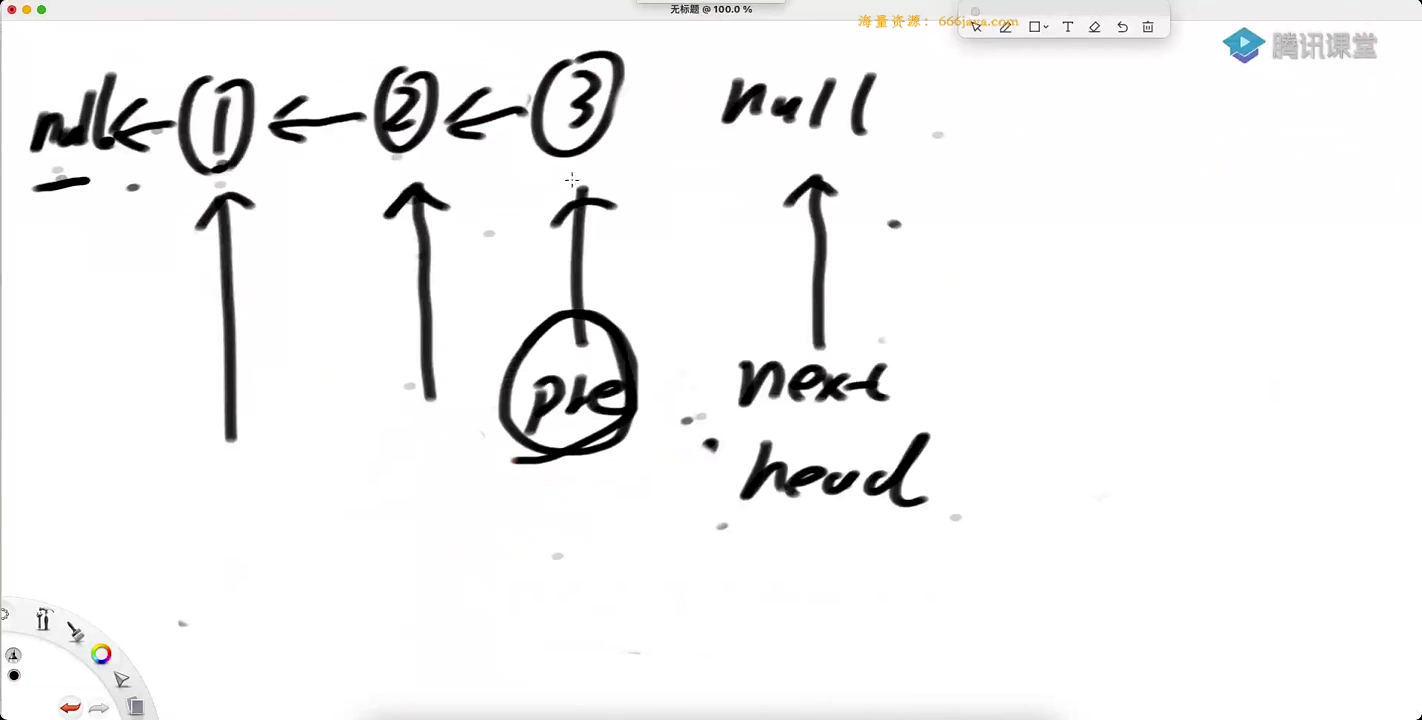 无标题 @ 100.0 %
海量资源：666java.com
腾讯课堂
null ← ① ← ② ← ③ null
pre next
head